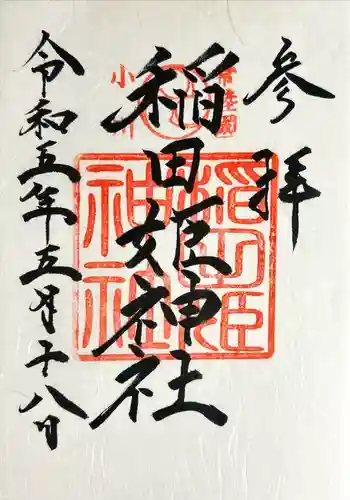 参拝
常陸國
小川
稲田姫神社
稲田姫神社
令和五年五月十八日